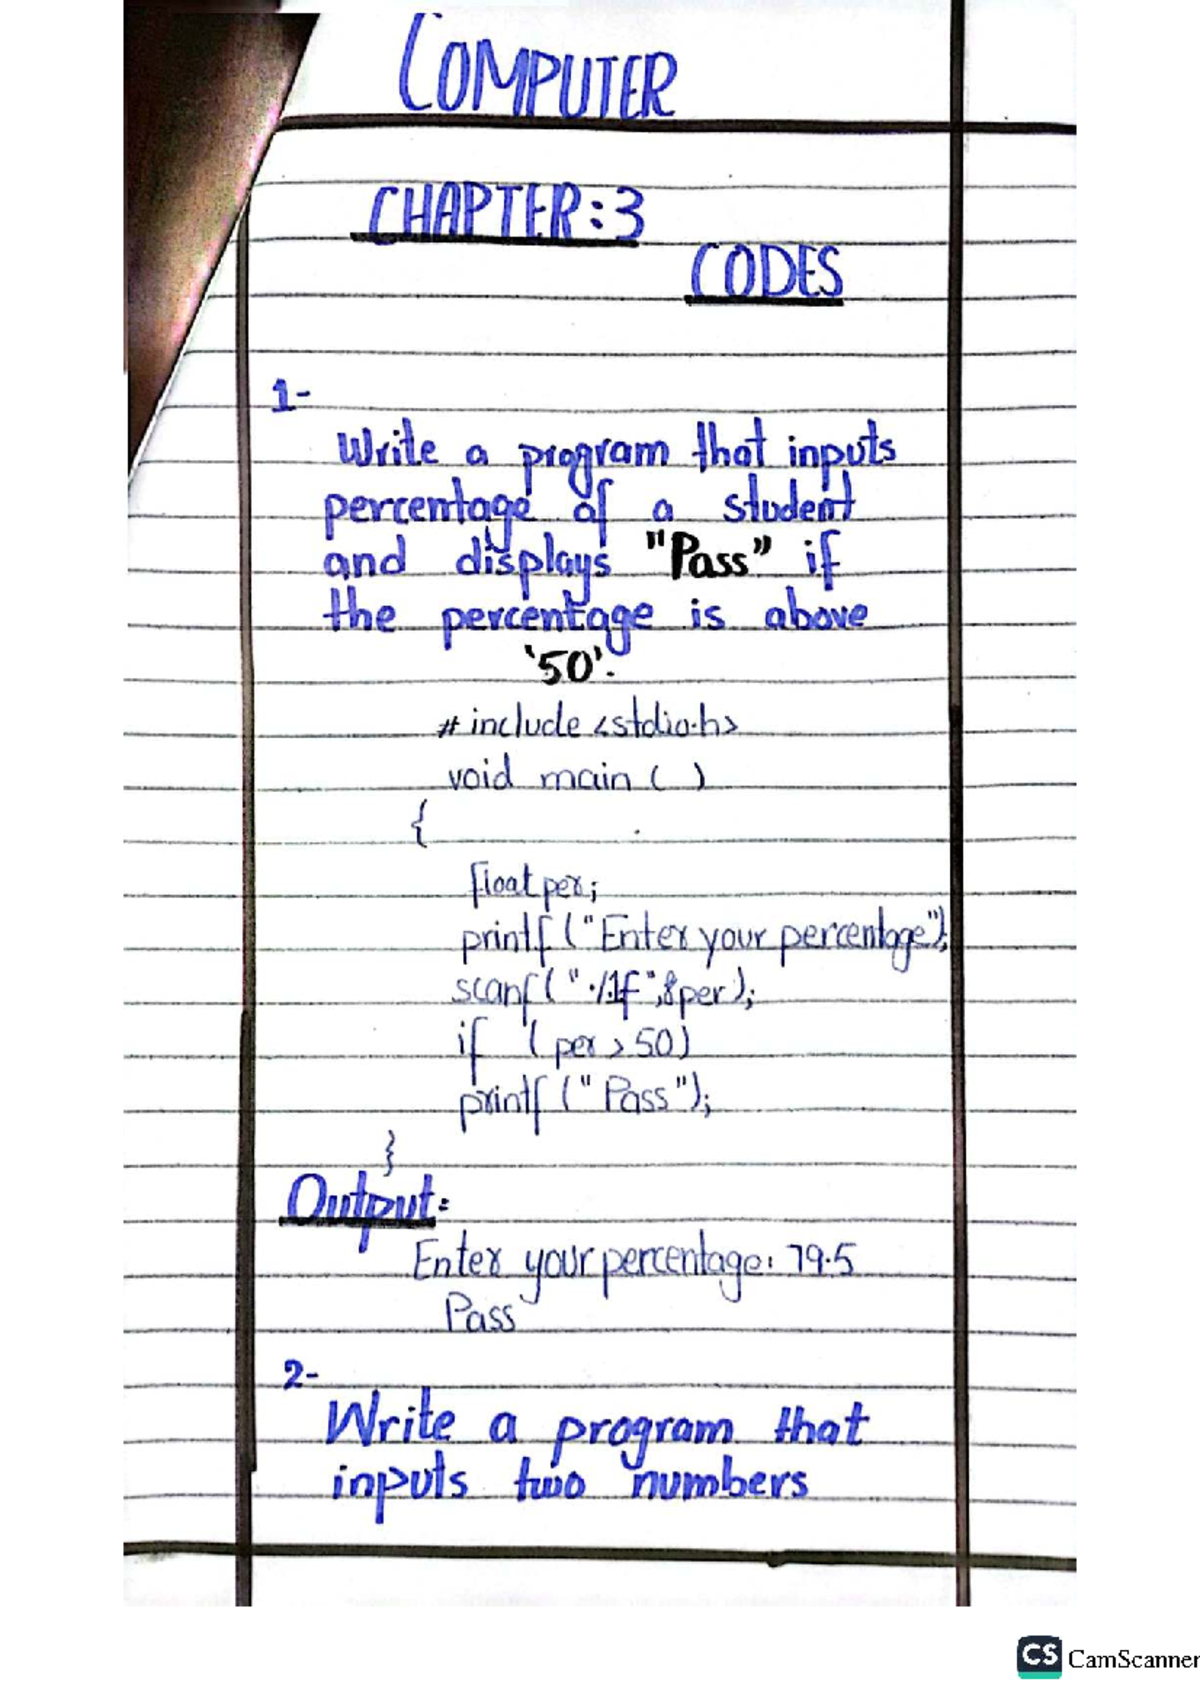 COMPUTER
CHAPTER:3
CODES
1-
Write a program that inputs
percentage of a student
and displays "Pass" if
the percentage is above
'50'.
# include <stdio.h>
void main ( )
{
float per;
printf ("Enter your percentage");
scanf( "%1f",&per);
if (per > 50)
printf (" Pass ");
}
Output:
Enter your percentage: 79.5
Pass
2-
Write a program that
inputs two numbers
CS CamScanner